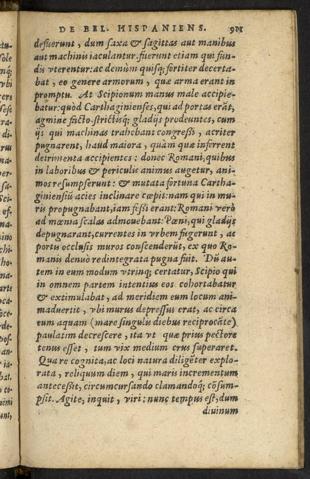 DE BEL. HISPANIENS.
defuerunt, dum saxa & sagittas aut manibus
aut machinis iaculantur. fuerunt etiam qui fun-
dis vterentur: ac demùm quisq; fortiter decerta-
bat, eo genere armorum, quæ arma erant in
promptu. At Scipionum manus male accipie-
batur: quòd Carthaginienses, qui ad portas erāt,
agmine facto. strictisq; gladijs prodeuntes, cum
ijs qui machinas trahebant congressi, acriter
pugnarent, haud maiora, quàm quæ inferrent
detrimenta accipientes: donec Romani, quibus
in laboribus & periculis animus augetur, ani-
mos resumpserunt: & mutata fortuna Cartha-
giniensiū acies inclinare cœpit: nam qui in mu-
ris propugnabant, iam fessi erant: Romani verò
ad mœnia scalas admouebant: Pœni, qui gladijs
depugnarant, currentes in vrbem fugerunt, ac
portu occlusis muros conscenderūt, ex quo Ro-
manis denuò redintegrata pugna fuit. Dū au-
tem in eum modum vtrinq; certatur, Scipio qui
in omnem partem intentius eos cohortabatur
& extimulabat, ad meridiem eum locum ani-
maduertit, vbi murus depressus erat, ac circa
eum aquam (mare singulis diebus reciprocāte)
paulatim decrescere, ita vt quæ prius pectore
tenus esset, tum vix medium crus superaret.
Qua re cognita, ac loci natura diligēter explo-
rata, reliquum diem, qui maris incrementum
antecessit, circumcursando clamandoq; cōsum-
psit. Agite, inquit, viri: nunc tempus est, dum
diuinum